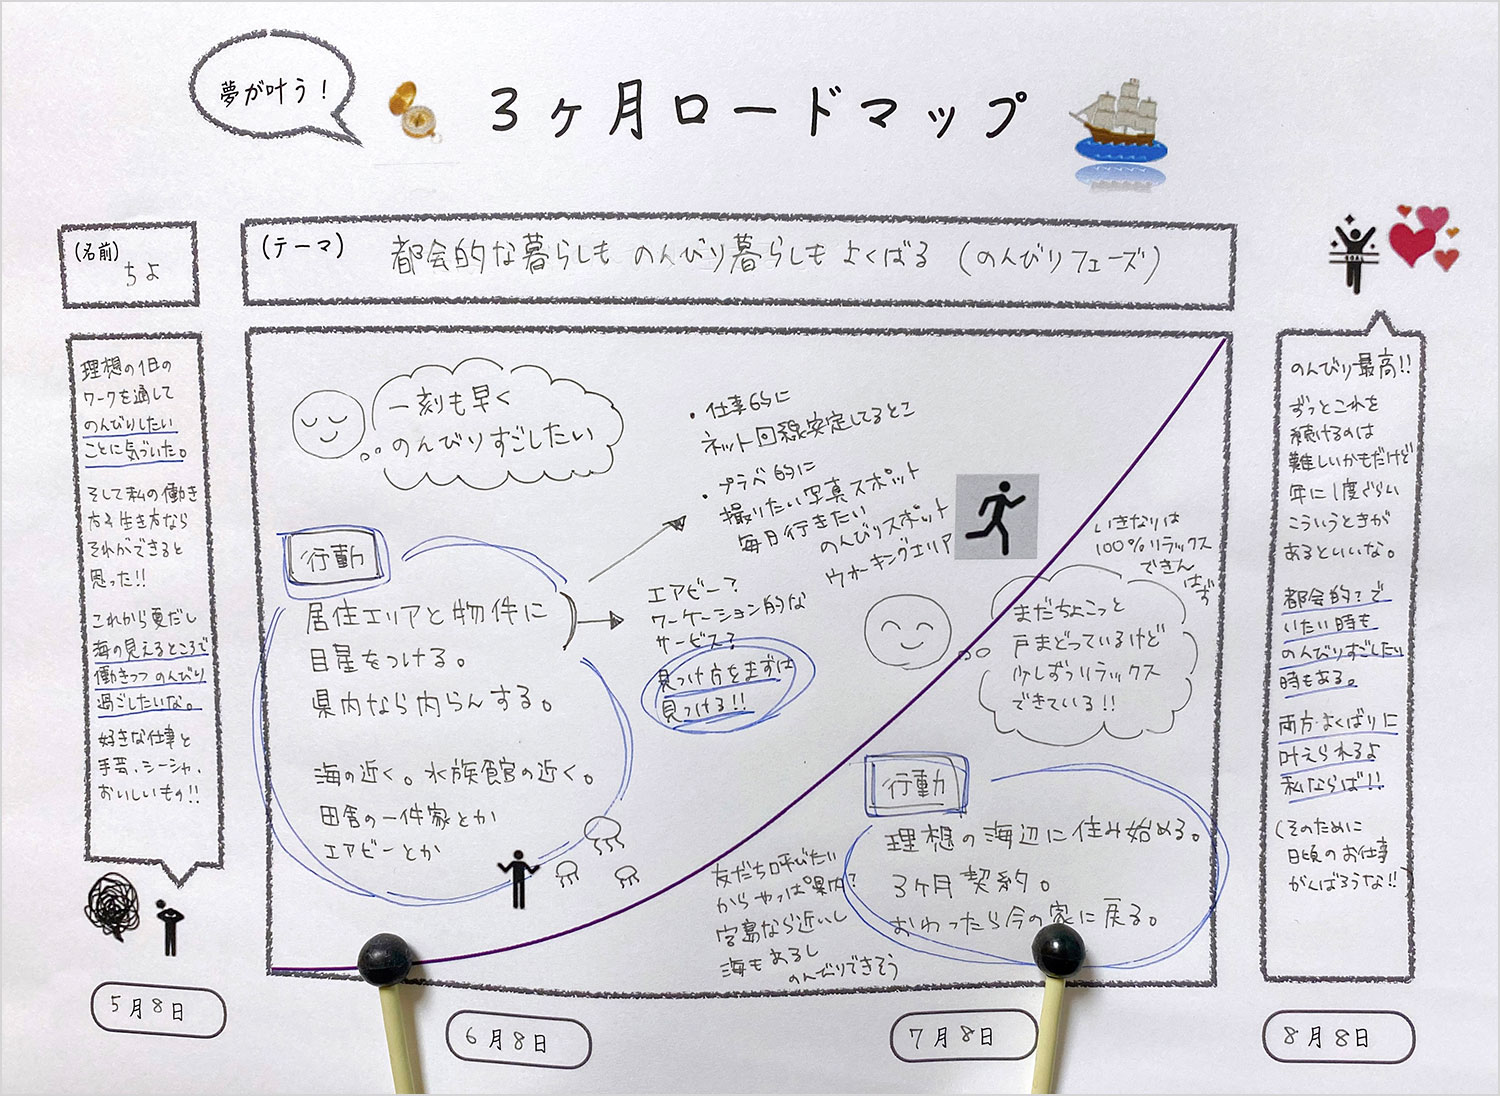 夢が叶う！
3ヶ月ロードマップ
(名前)
ちよ
(テーマ)
都会的な暮らしも のんびり暮らしも よくばる (のんびりフェーズ)
理想の1日の
ワークを通して
のんびりしたい
ことに気づいた。
そして私の働き
方&生き方なら
それができると
思った!!
これから夏だし
海の見えるところで
働きつつ のんびり
過ごしたいな。
好きな仕事と
手芸、シーシャ、
おいしいもの!!
5月8日
一刻も早く
のんびりすごしたい
行動
居住エリアと物件に
目星をつける。
県内なら内らんする。
海の近く。水族館の近く。
田舎の一件家とか
エアビーとか
・仕事的に
ネット回線安定してるとこ
・プラベ的に
撮りたい写真スポット
毎日行きたい
のんびりスポット
ウォーキングエリア
エアビー?
ワーケーション的な
サービス?
見つけ方をまずは
見つける!!
6月8日
いきなりは
100%リラックス
できん
はず
まだちょこっと
戸まどっているけど
少しずつリラックス
できている!!
行動
理想の海辺に住み始める。
3ヶ月契約。
おわったら今の家に戻る。
友だち呼びたい
からやっぱ県内?
字島なら近いし
海もあるし
のんびりできそう
7月8日
のんびり最高!!
ずっとこれを
続けるのは
難しいかもだけど
年に1度ぐらい
こういうときが
あるといいな。
都会的?で
いたい時も
のんびりすごしたい
時もある。
両方よくばりに
叶えられるよ
私ならば!!
(そのために
日頃のお仕事
がんばろうな!!
8月8日